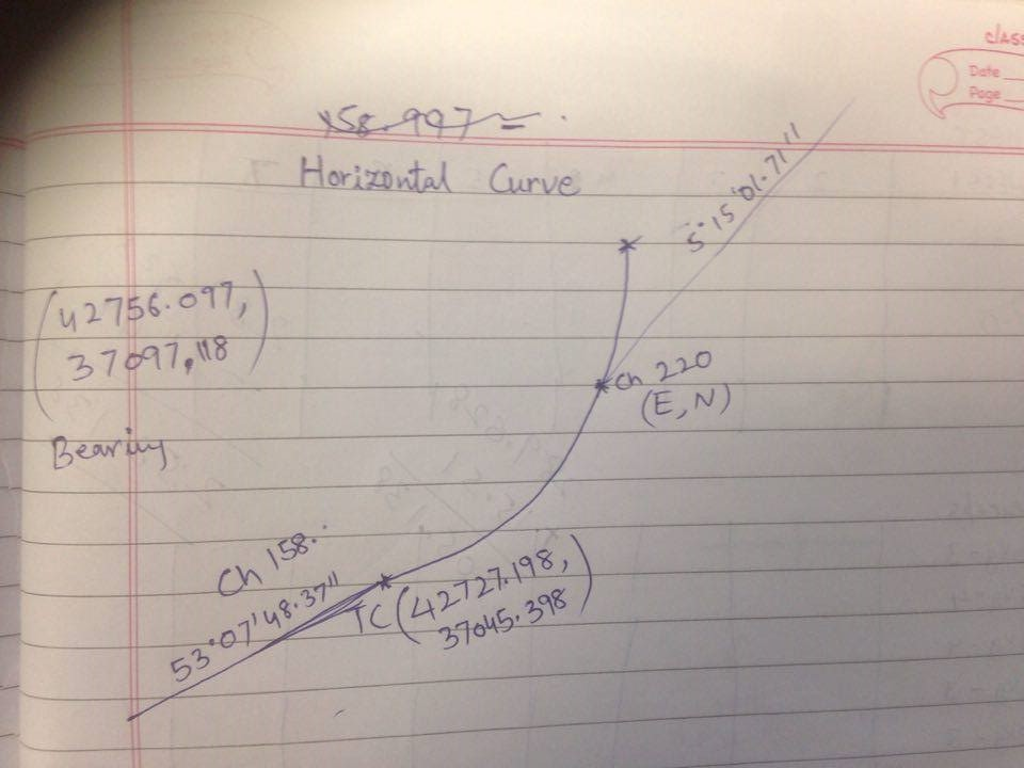 class
Date
Page
158.997 =
Horizontal Curve
5°15'01.71"
(42756.097,
37097.118)
Ch 220
(E, N)
Bearing
Ch 158.
53°07'48.37"
TC (42727.198,
37045.398)